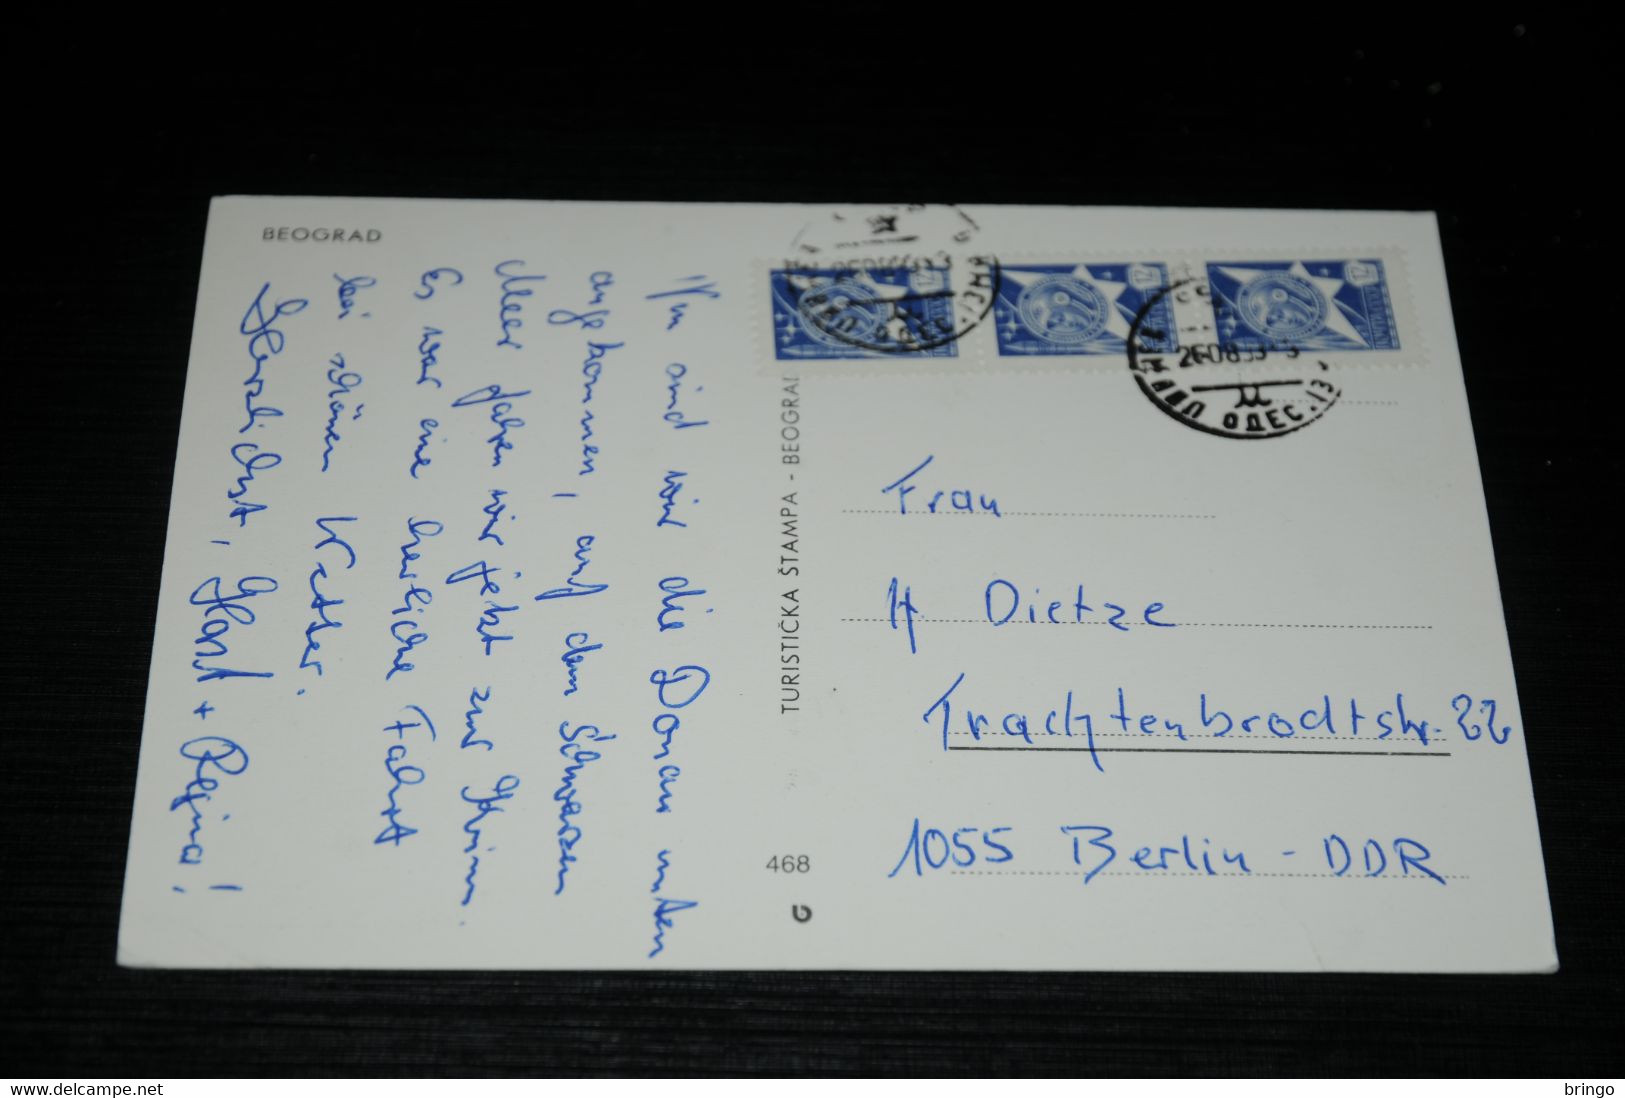 BEOGRAD
Nun sind wir die Donau unten
angekommen, auf dem Schwarzen
Meer fahren wir jetzt zur Krim.
Es war eine herrliche Fahrt
bei schönem Wetter.
Herzlichst, Horst + Regina!
TURISTIČKA ŠTAMPA - BEOGRAD
468
Frau
H. Dietze
Trachtenbrodtstr. 22
1055 Berlin - DDR
ИЗМАИЛ ОДЕС.
ИЗМАИЛ ОДЕС.
www.delcampe.net
bringo